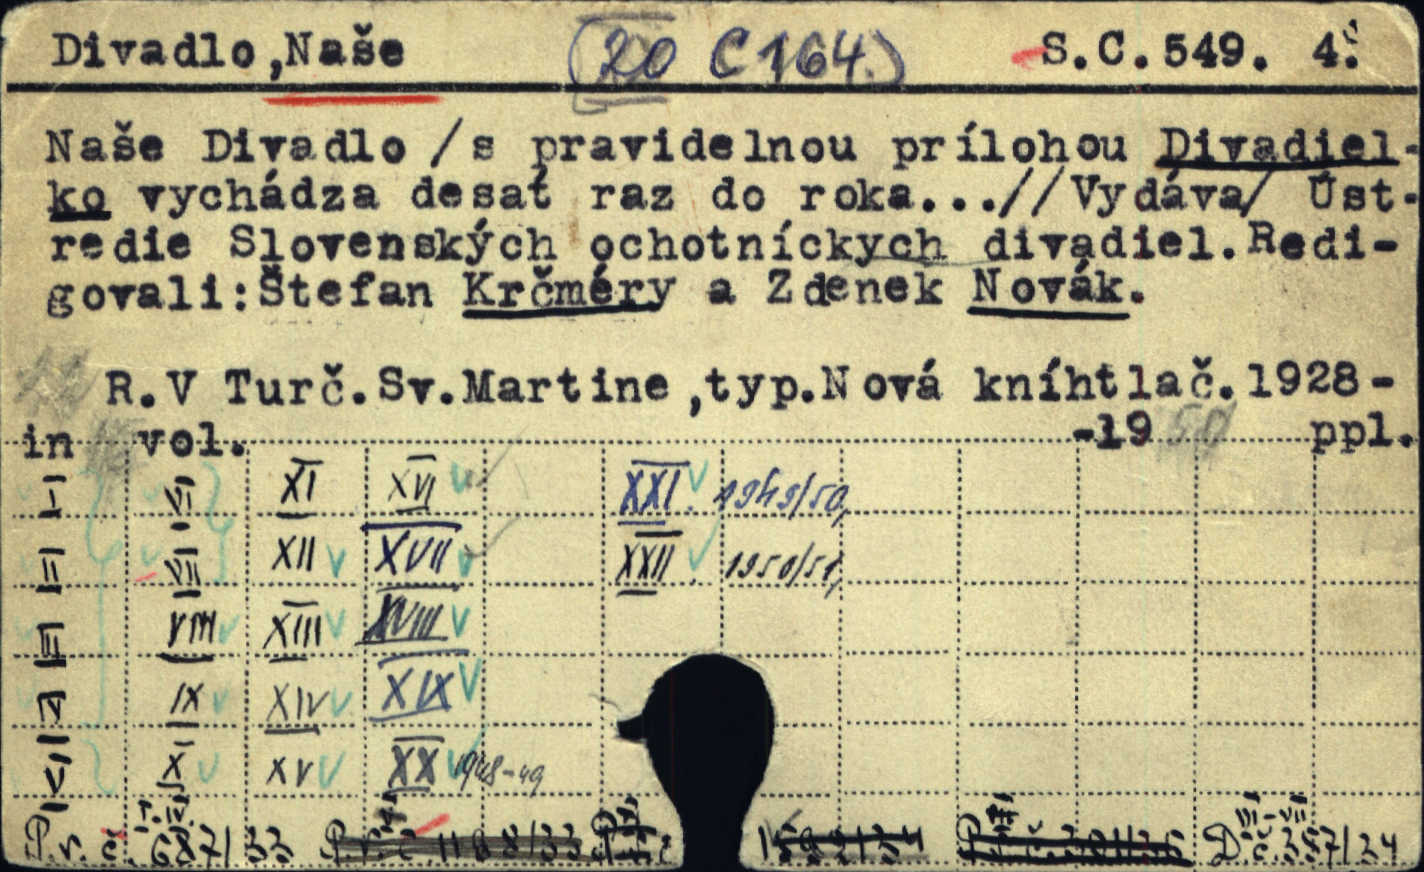 Divadlo,Naše (20 C 164.) S.C.549. 4:
Naše Divadlo /s pravidelnou prílohou Divadiel-
ko vychádza desať raz do roka...//Vydáva/ Úst-
redie Slovenských ochotníckych divadiel.Redi-
govali:Štefan Krčméry a Zdenek Novák.
R.V Turč.Sv.Martine,typ.Nová kníhtlač.1928-
in vol. -19 50 ppl.
I VI XI XVI XXI. 1949/50,
II VII XII XVII XXII. 1950/51,
III VIII XIII XVIII
IV IX XIV XIX
V X XV XX 1948-49
I.-IV. V VI-VII
P.r.č. 687/33 P.r.č. 1168/33 D.č.357/34